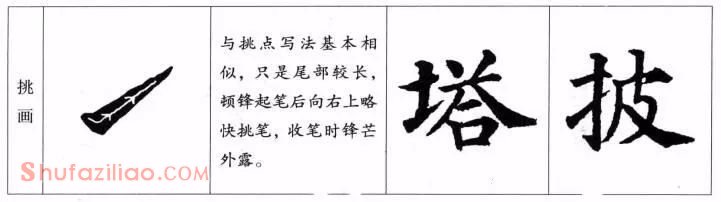 挑画
与挑点写法基本相
似，只是尾部较长，
顿锋起笔后向右上略
快挑笔，收笔时锋芒
外露。
塔
披
Shufaziliao.com